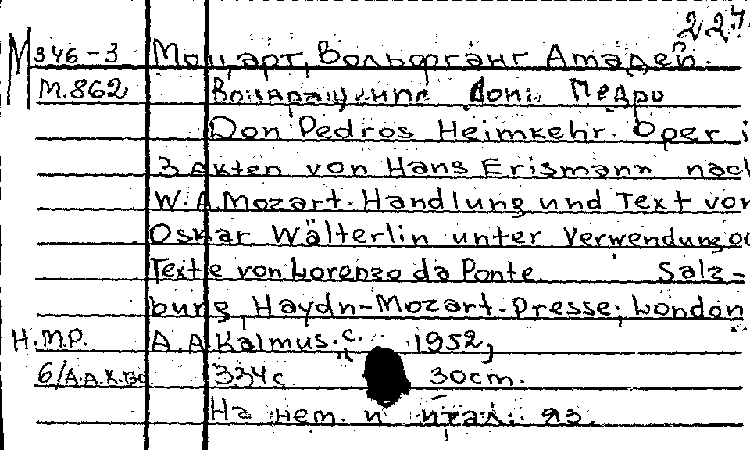 227
М 346-3 Моцарт, Вольфганг Амадей.
М.862 Возвращение Дона Педро
Don Pedros Heimkehr. Oper i
3 Akten von Hans Erismann nach
W.A.Mozart. Handlung und Text von
Oskar Wälterlin unter Verwendung
Texte von Lorenzo da Ponte Salz-
burg, Haydn-Mozart-Presse; London
Н.М.Р. A.A.Kalmus.c. 1952,
6/A.A.K. 334c 30cm.
На нем. и итал. яз.